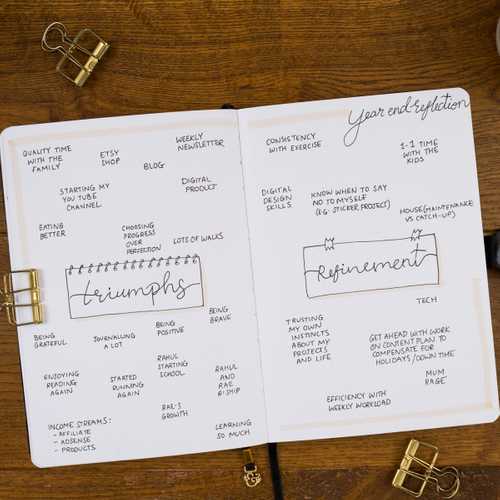 QUALITY TIME
WITH THE
FAMILY
ETSY
SHOP
WEEKLY
NEWSLETTER
BLOG
STARTING MY
YOU TUBE
CHANNEL
DIGITAL
PRODUCT
EATING
BETTER
CHOOSING
PROGRESS
OVER
PERFECTION
LOTS OF WALKS
triumphs
BEING
GRATEFUL
JOURNALLING
A LOT
BEING
POSITIVE
BEING
BRAVE
ENJOYING
READING
AGAIN
STARTED
RUNNING
AGAIN
RAHUL
STARTING
SCHOOL
RAHUL
AND
RAE
R'SHIP
RAE'S
GROWTH
INCOME STREAMS:
- AFFILIATE
- ADSENSE
- PRODUCTS
LEARNING
SO MUCH
Year end reflection
CONSISTENCY
WITH EXERCISE
1-1 TIME
WITH THE
KIDS
DIGITAL
DESIGN
SKILLS
KNOW WHEN TO SAY
NO TO MYSELF
(EG: STICKER PROJECT)
HOUSE (MAINTENANCE
VS CATCH-UP)
Refinement
TECH
TRUSTING
MY OWN
INSTINCTS
ABOUT MY
PROJECTS
AND LIFE
GET AHEAD WITH WORK
ON CONTENT PLAN TO
COMPENSATE FOR
HOLIDAYS/DOWN TIME
MUM
RAGE
EFFICIENCY WITH
WEEKLY WORKLOAD